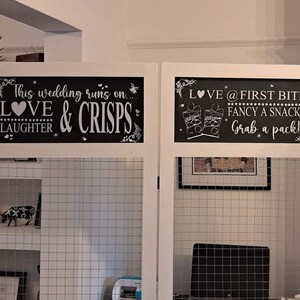 This wedding runs on...
LOVE
LAUGHTER
& CRISPS
LOVE @ FIRST BIT
FANCY A SNACK
Grab a pack!